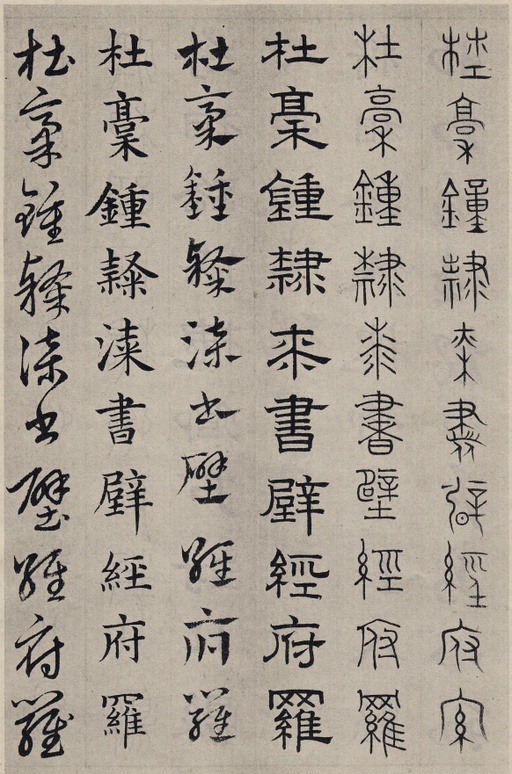 杜稾鍾隸桼書壁經府羅
杜稾鍾隸桼書壁經府羅
杜稾鍾隸来書壁經府羅
杜稾鍾隸漆書壁經府羅
杜稾鍾隸漆書壁經府羅
杜稾鍾隸漆書壁經府羅